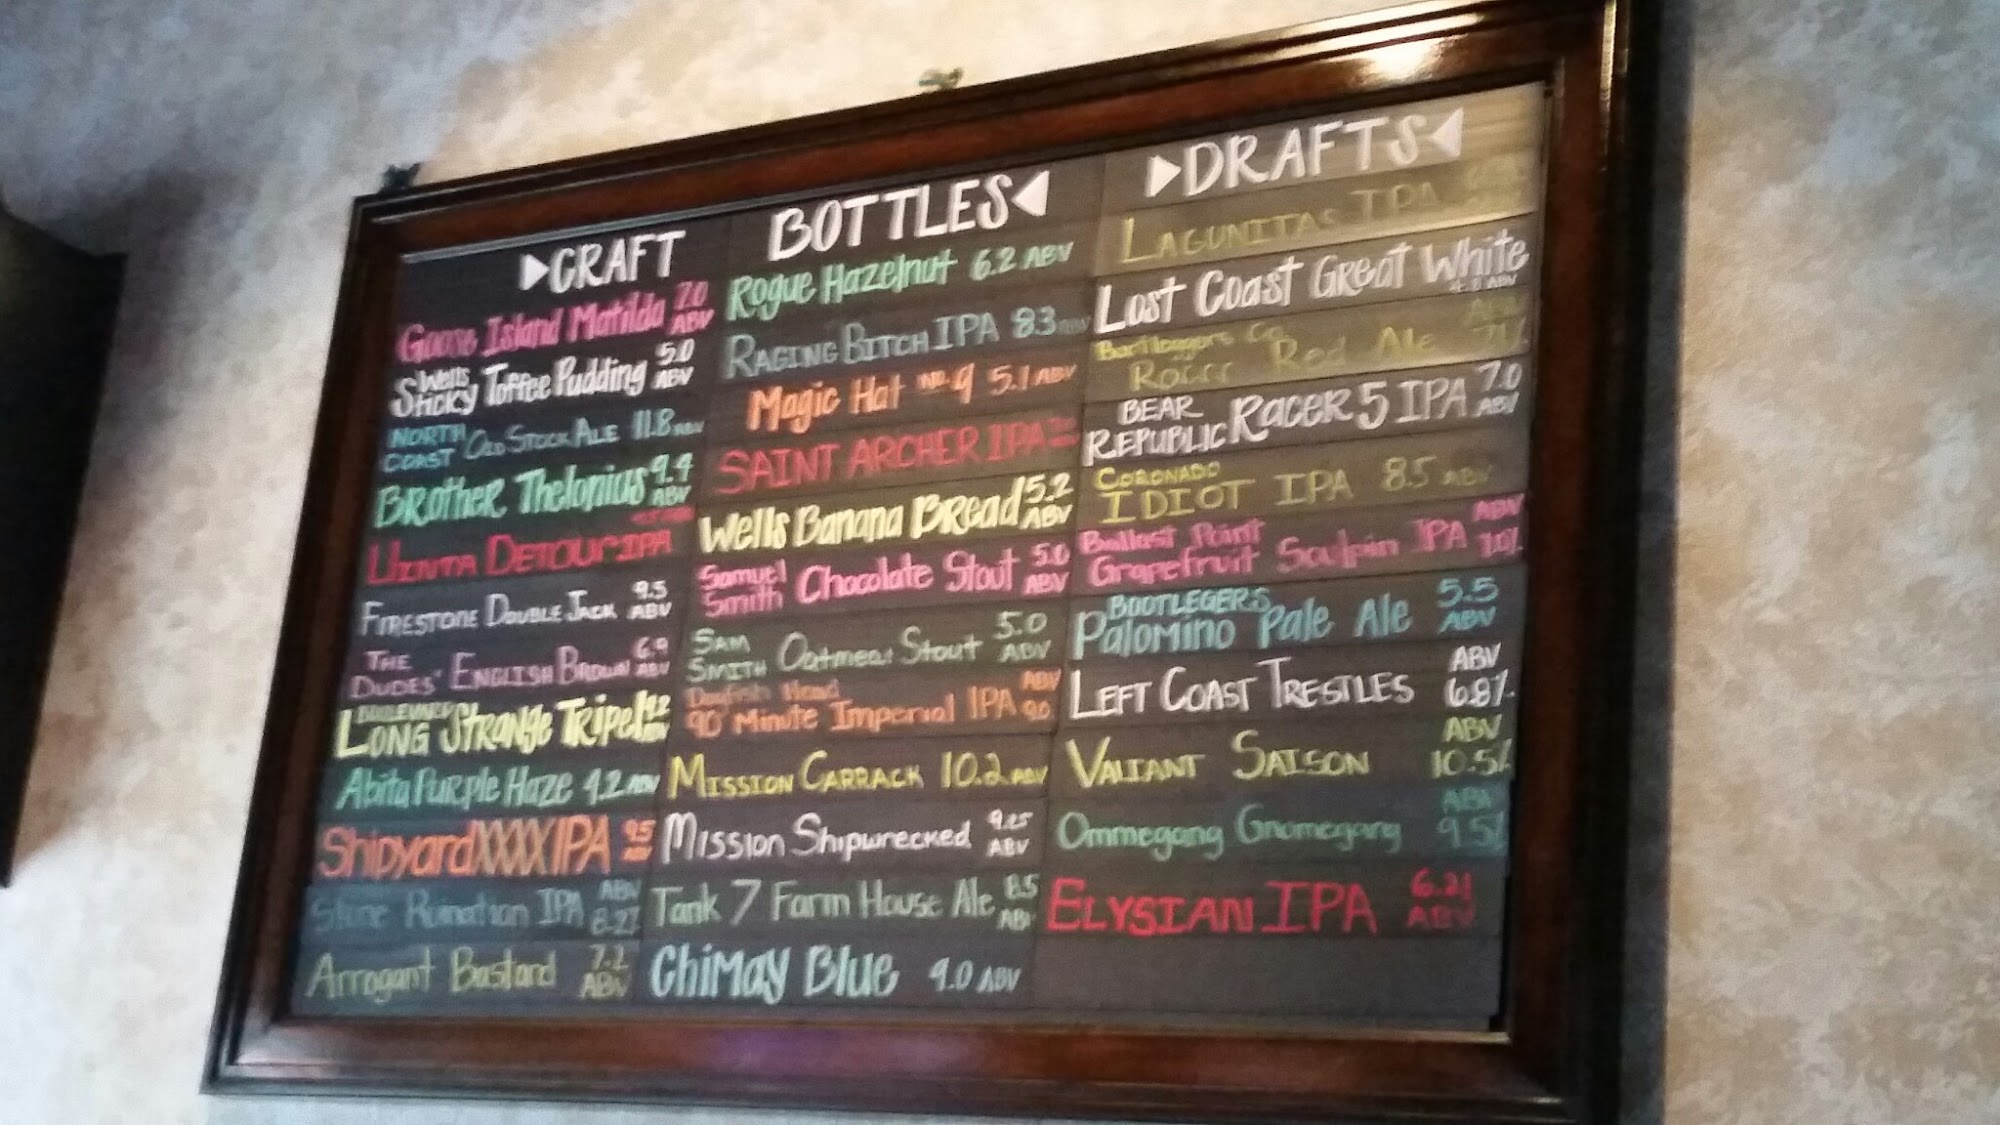 ▶CRAFT
Goose Island Matilda 7.0 ABV
Wells Sticky Toffee Pudding 5.0 ABV
NORTH COAST OLD STOCK ALE 11.8 ABV
BROTHER Thelonius 9.4 ABV
UINTA DETOUR IPA
FIRESTONE DOUBLE JACK 9.5 ABV
THE DUDES' ENGLISH BROWN 6.9 ABV
BOULEVARD LONG STRANGE TRIPEL 9.2 ABV
Abita Purple Haze 4.2 ABV
Shipyard XXXX IPA 9.5 ABV
Stone Ruination IPA ABV 8.2%
Arrogant Bastard 7.2 ABV
BOTTLES◀
Rogue Hazelnut 6.2 ABV
RAGING BITCH IPA 8.3 ABV
Magic Hat No 9 5.1 ABV
SAINT ARCHER IPA
Wells Banana Bread 5.2 ABV
Samuel Smith Chocolate Stout 5.0 ABV
SAM SMITH Oatmeal Stout 5.0 ABV
Dogfish Head 90 Minute Imperial IPA ABV 9.0
MISSION CARRACK 10.2 ABV
MISSION SHIPWRECKED 9.25 ABV
Tank 7 Farm House Ale 8.5 ABV
Chimay Blue 9.0 ABV
▶DRAFTS◀
LAGUNITAS IPA
Lost Coast Great White 4.8 ABV
Red Ale ABV 7.1%
BEAR REPUBLIC RACER 5 IPA 7.0 ABV
CORONADO IDIOT IPA 8.5 ABV
Ballast Point Grapefruit Sculpin IPA ABV 7.0%
BOOTLEGERS Palomino Pale Ale 5.5 ABV
LEFT COAST TRESTLES ABV 6.8%
VALIANT SAISON ABV 10.5%
Ommegang Gnomegang ABV 9.5%
ELYSIAN IPA 6.21 ABV